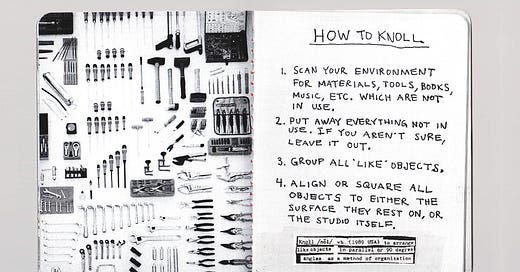 HOW TO KNOLL
1. SCAN YOUR ENVIRONMENT
FOR MATERIALS, TOOLS, BOOKS,
MUSIC, ETC. WHICH ARE NOT
IN USE.
2. PUT AWAY EVERYTHING NOT IN
USE. IF YOU AREN'T SURE,
LEAVE IT OUT.
3. GROUP ALL 'LIKE' OBJECTS.
4. ALIGN OR SQUARE ALL
OBJECTS TO EITHER THE
SURFACE THEY REST ON, OR
THE STUDIO ITSELF.
Knoll /nōl/ vb. (1980 USA) to arrange
like objects in parallel or 90 degree
angles as a method of organization